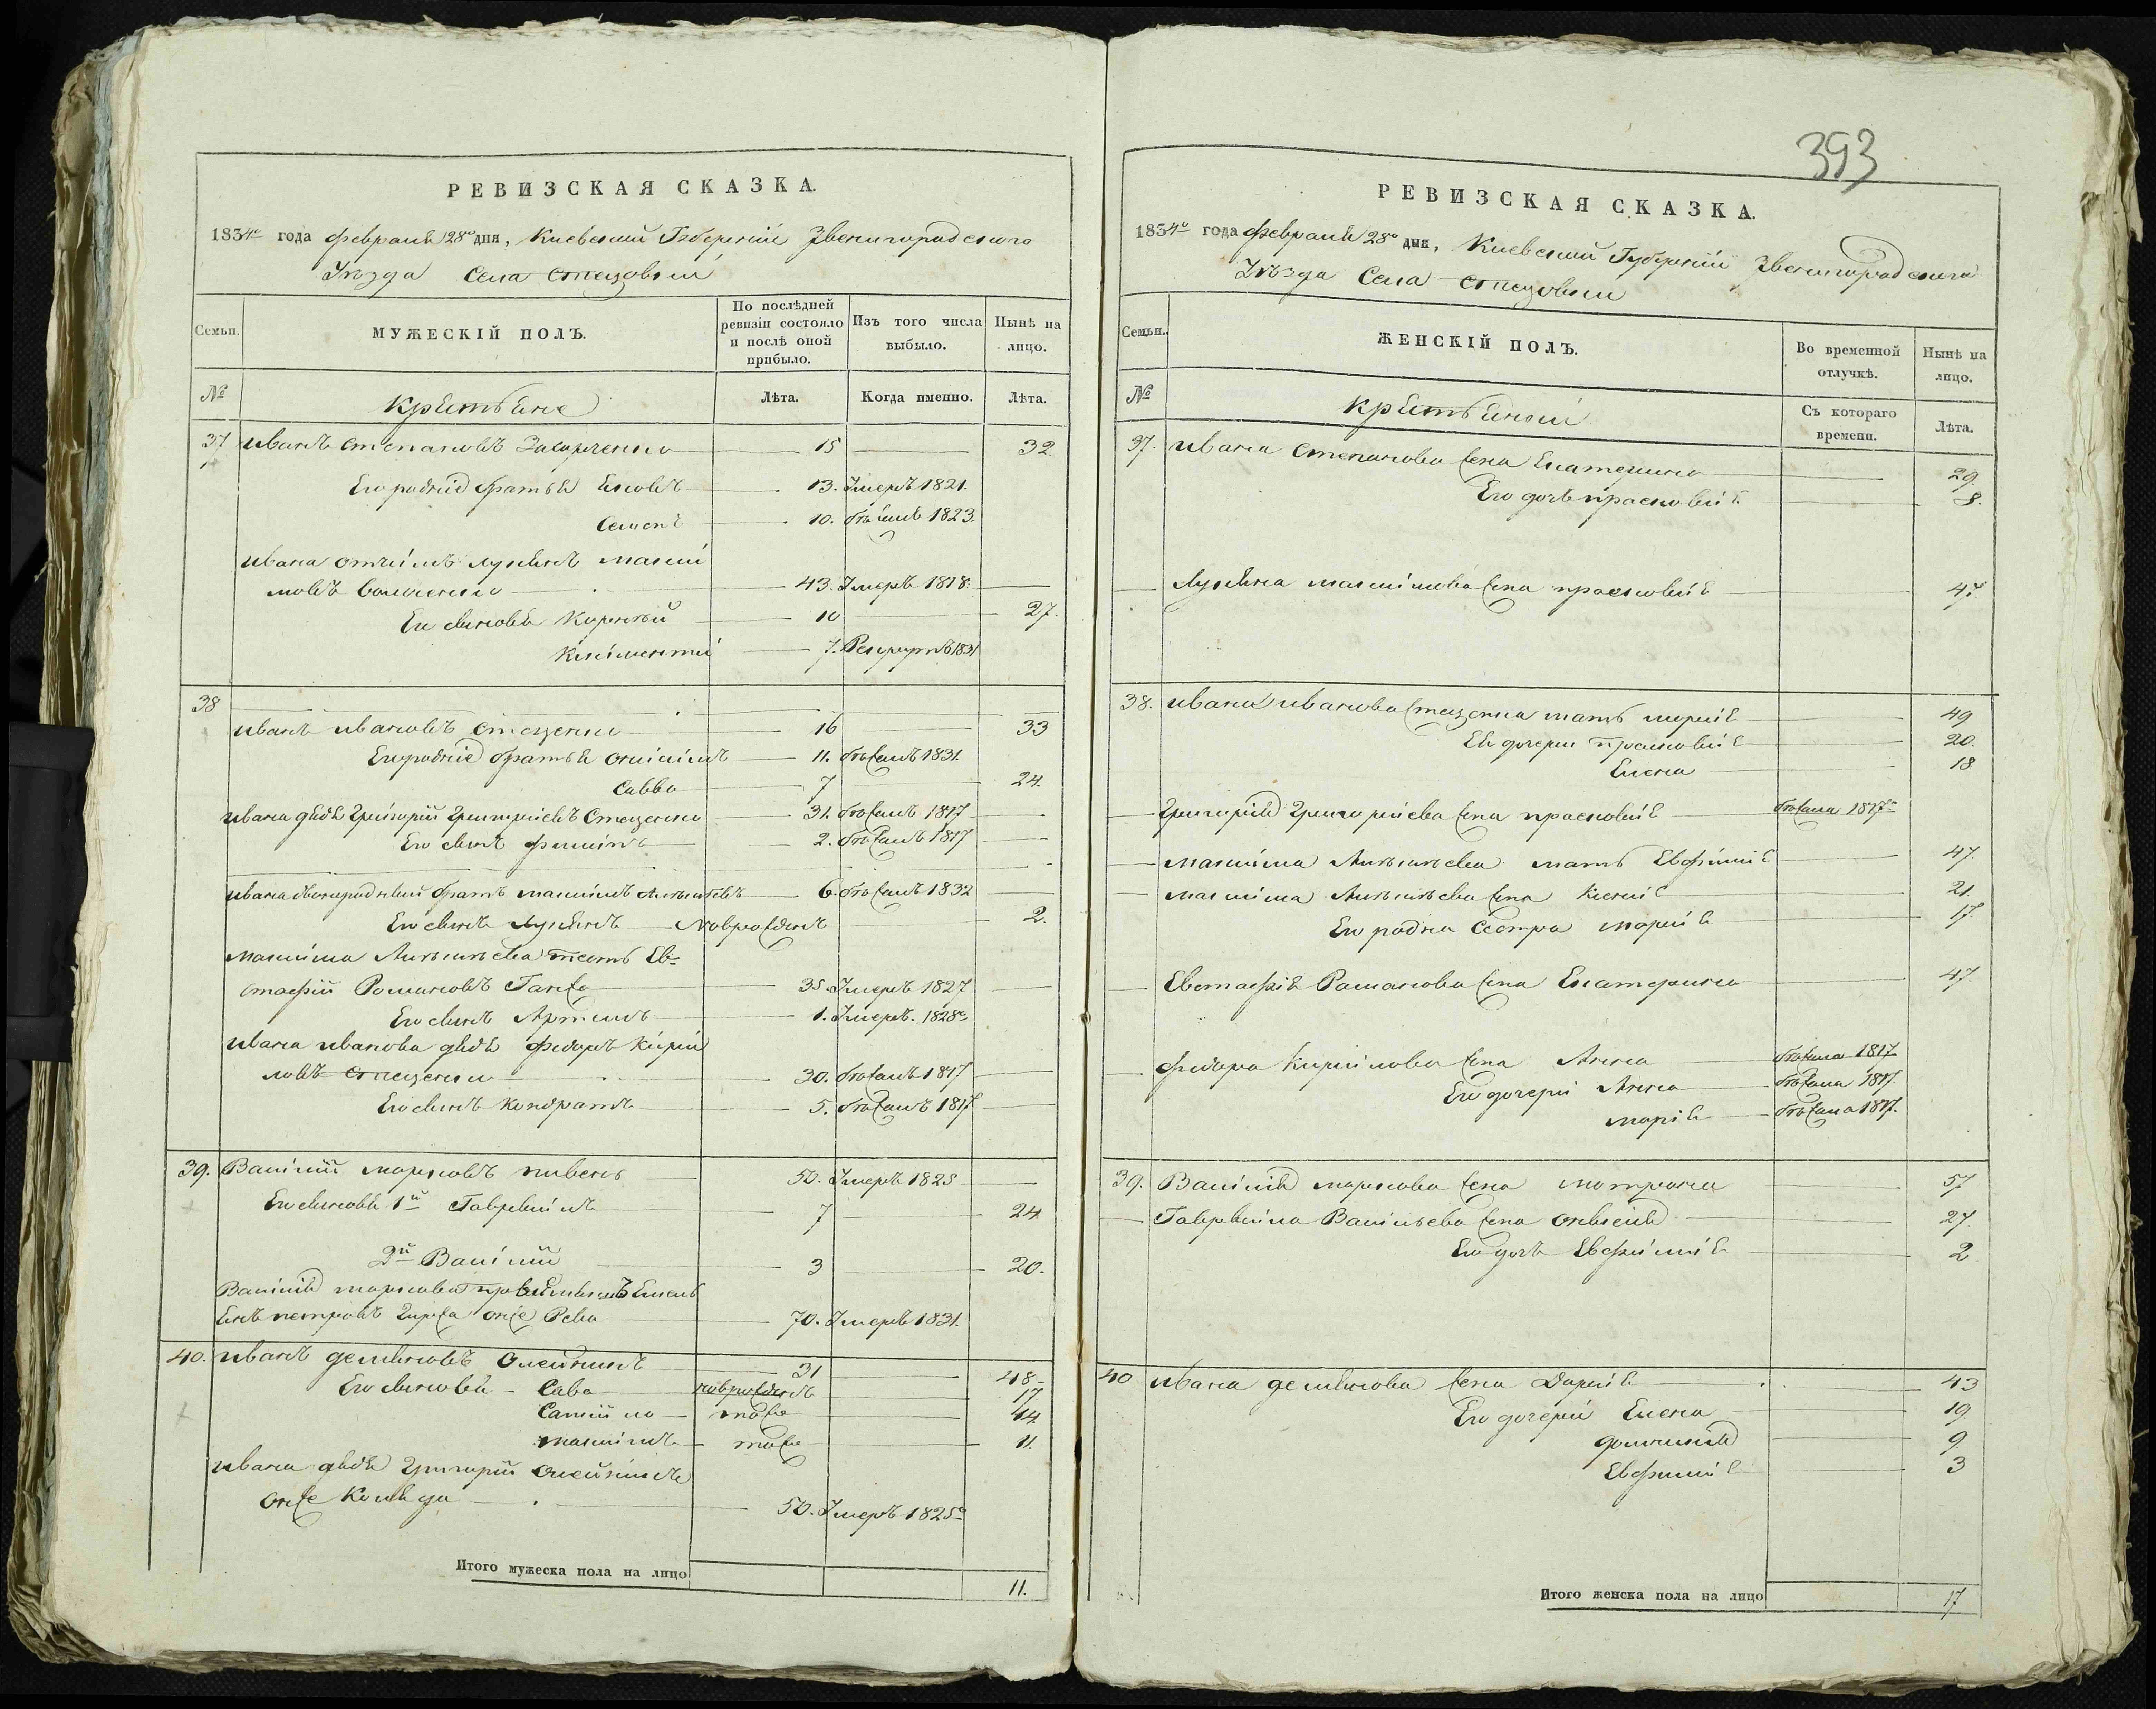 РЕВИЗСКАЯ СКАЗКА.
1834го года февраля 28го дня, Киевской Губерніи Звенигородского
Уѣзда Села Стецовки
Семьи.
МУЖЕСКІЙ ПОЛЪ.
По послѣдней ревизіи состояло и послѣ оной прибыло.
Изъ того числа выбыло.
Нынѣ на лицо.
№
Крестьяне
Лѣта.
Когда именно.
Лѣта.
37 Иванъ Степановъ Захарченко 15 32
Его родніе братья Яковъ 13. Умеръ 1821.
Семенъ 10. бѣжалъ 1823.
Ивана отчимъ Лукьянъ Макси
мовъ 43. Умеръ 1818.
Его сыновья Корнѣй 10 27.
Климентій 7. Рекрутъ 1831
38
Иванъ Ивановъ Стеценко 16 33
Его родніе братья Онисимъ 11. бѣжалъ 1831.
Савва 7 24.
Ивана дядя Григорій Григоріевъ Стеценко 31. бѣжалъ 1817
Его сынъ Филипъ 2. бѣжалъ 1817
Ивана двоюродный братъ Максимъ Алексѣевъ 6. бѣжалъ 1832
Его сынъ Лукьянъ новрожденъ 2.
Максима Алексѣева тесть Ев=
стафій Романовъ Ганжа 35. Умеръ 1827
Его сынъ Артемъ 1. Умеръ. 1828го
Ивана Иванова дядя Федоръ Кири
ловъ Стеценко 30. бѣжалъ 1817
Его сынъ Кондратъ 5. бѣжалъ 1817
39. Василій Марковъ Пивень 50. Умеръ 1825
Его сыновья 1й Гаврѣилъ 7 24
2й Василій 3 20.
Василія Маркова Емель
янъ Петровъ онже Рева 70. Умеръ 1831.
40. Иванъ Демяновъ Олейникъ 31 48
Его сыновья Сава новрожденъ 17
Самійло тоже 14
Максимъ тоже 11.
Ивана дядя Григорій Олейникъ
онже Коляда 50. Умеръ 1825го
Итого мужеска пола на лицо 11.
393
РЕВИЗСКАЯ СКАЗКА.
1834го года февраля 28го дня, Киевской Губерніи Звенигородского
Уѣзда Села Стецовки
Семьи.
ЖЕНСКІЙ ПОЛЪ.
Во временной отлучкѣ.
Нынѣ на лицо.
№
Крестьянки
Съ котораго времени.
Лѣта.
37. Ивана Степанова жена Екатерина 29.
Его дочь Прасковія 8.
Лукьяна Максимова жена Прасковія 47.
38. Ивана Иванова Стеценка мать Марія 49
Ея дочери Прасковія 20.
Елена 18
Григорія Григоріева жена Прасковія бѣжала 1817го
Максима Алексѣева мать Евфимія 47.
Максима Алексѣева жена Ксенія 21.
Его родна сестра Марія 17.
Евстафія Романова жена Екатерина 47.
Федора Кирилова жена Анна бѣжала 1817
Его дочери Анна бѣжала 1817.
Марія бѣжала 1817.
39. Василія Маркова жена Матрона 57
Гаврѣила Васильева жена 27.
Его дочь Евфимія 2
40 Ивана Демянова жена Дарія 43
Его дочери Елена 19.
Домникія 9
Евфимія 3
Итого женска пола на лицо 17